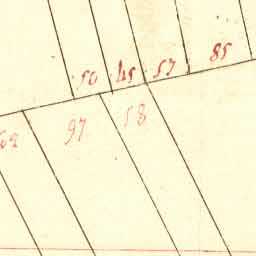 50 45 57 85
97 58